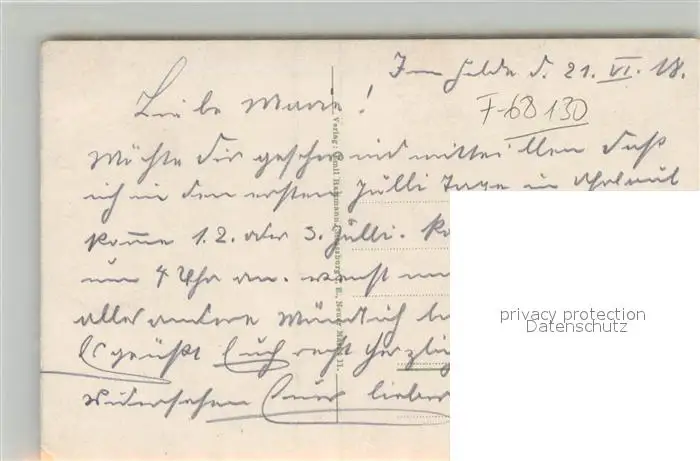 Im Felde d. 21. VI. 18.
F-68130
Liebe Marie!
Möchte dir geschwind mitteillen daß
ich in den ersten Jülli Tage in Uhrlaub
komme 1. 2. oder 3. Jülli.
um 4 Uhr an.
alles andere Mündlich
Es grüßt Euch recht herzlig
widersehen Euer lieber
Verlag: Emil Hartmann, Strassburg i. E., Neuer Markt 11.
privacy protection
Datenschutz